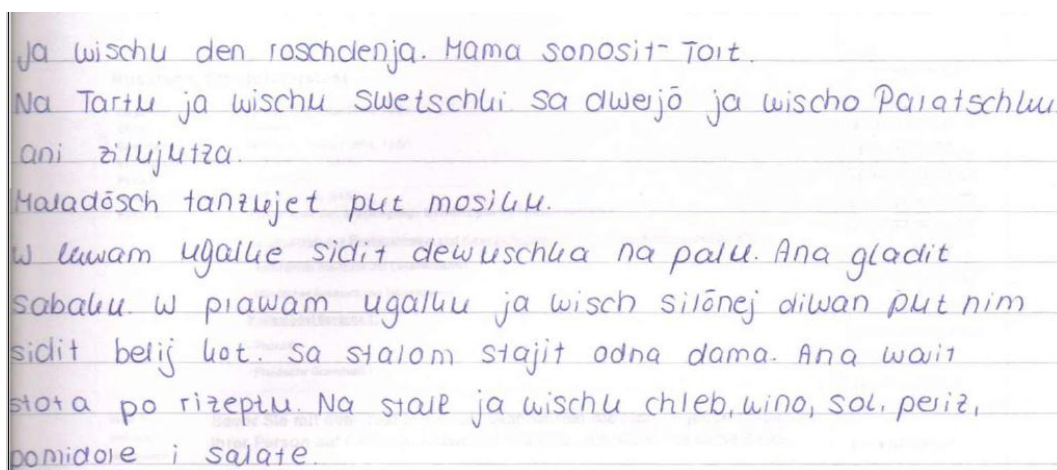 Ja wischu den roschdenja. Mama sonosit-Tort.
Na Tartu ja wischu Swetschki sa dwejö ja wischo Paratschku
ani zilujutza.
Maladösch tanzujet put mosiku.
W lewam ugalke sidit dewuschka na palu. Ana gladit
sabaku. W prawam ugalku ja wisch silönej diwan put nim
sidit belij kot. Sa stalom stajit odna dama. Ana warit
stota po rizeptu. Na stale ja wischu chleb, wino, sol, periz,
pomidore i salate.